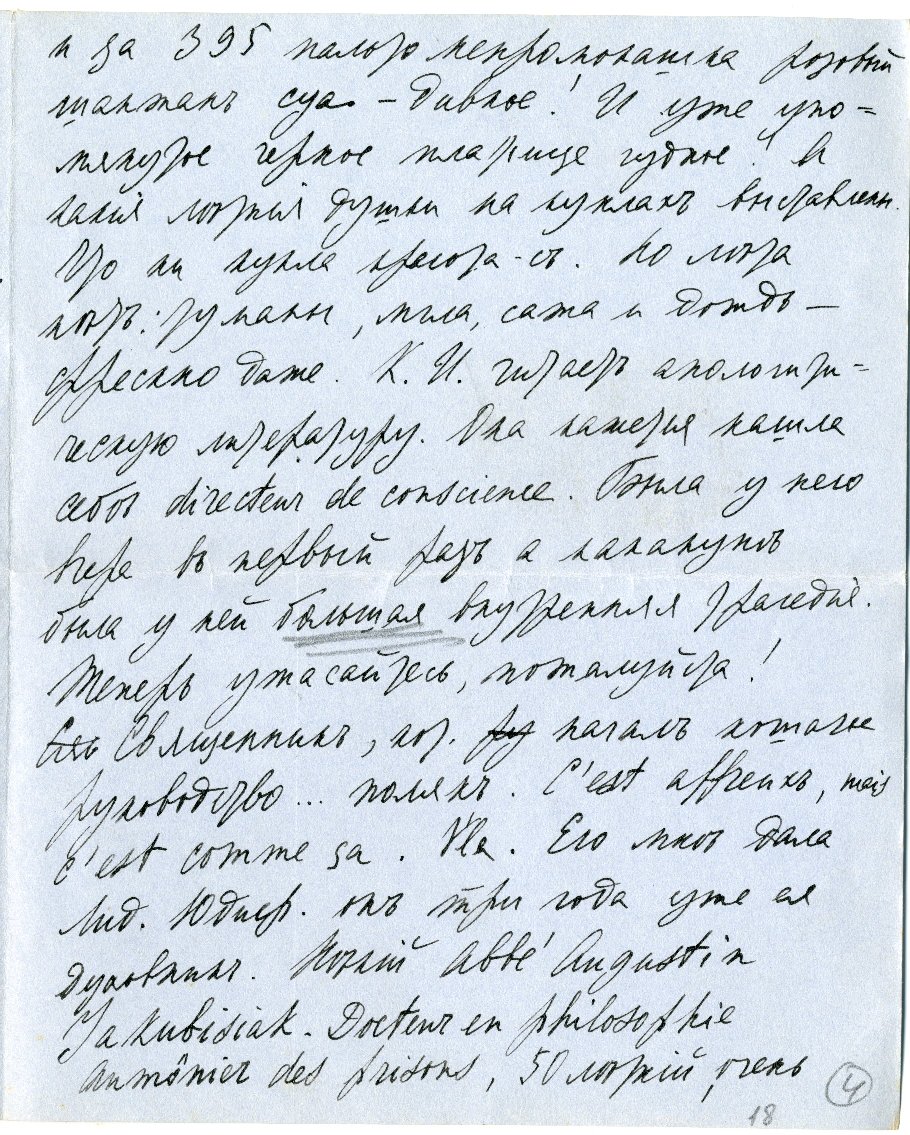 и за 395 пальто непромокашка розовый
шанжанъ суа – дивное! И уже упо=
мянутое черное платьице чудное! А
какiя лѣтнiя душки на куклахъ выставлены.
Что ни кукла красота-съ. Но лѣта
нѣтъ: туманы, мгла, сажа и дождь –
фрескно даже. К. И. читаетъ апологети=
ческую литературу. Она кажется нашла
себѣ directeur de conscience. Была у него
вчера въ первый разъ а наканунѣ
была у ней большая внутренняя трагедiя.
Теперь ужасайтесь, пожалуйста!
Священникъ, кот. началъ
руководство... полякъ. C'est affreux, mais
c'est comme ça. Vlà. Его мнѣ дала
Лид. Юдиф. онъ три года уже ея
духовникъ. Нѣкiй Abbé Augustin
Jakubisiak. Docteur en philosophie
Aumônier des prisons, 50 лѣтнiй, очень
4
18